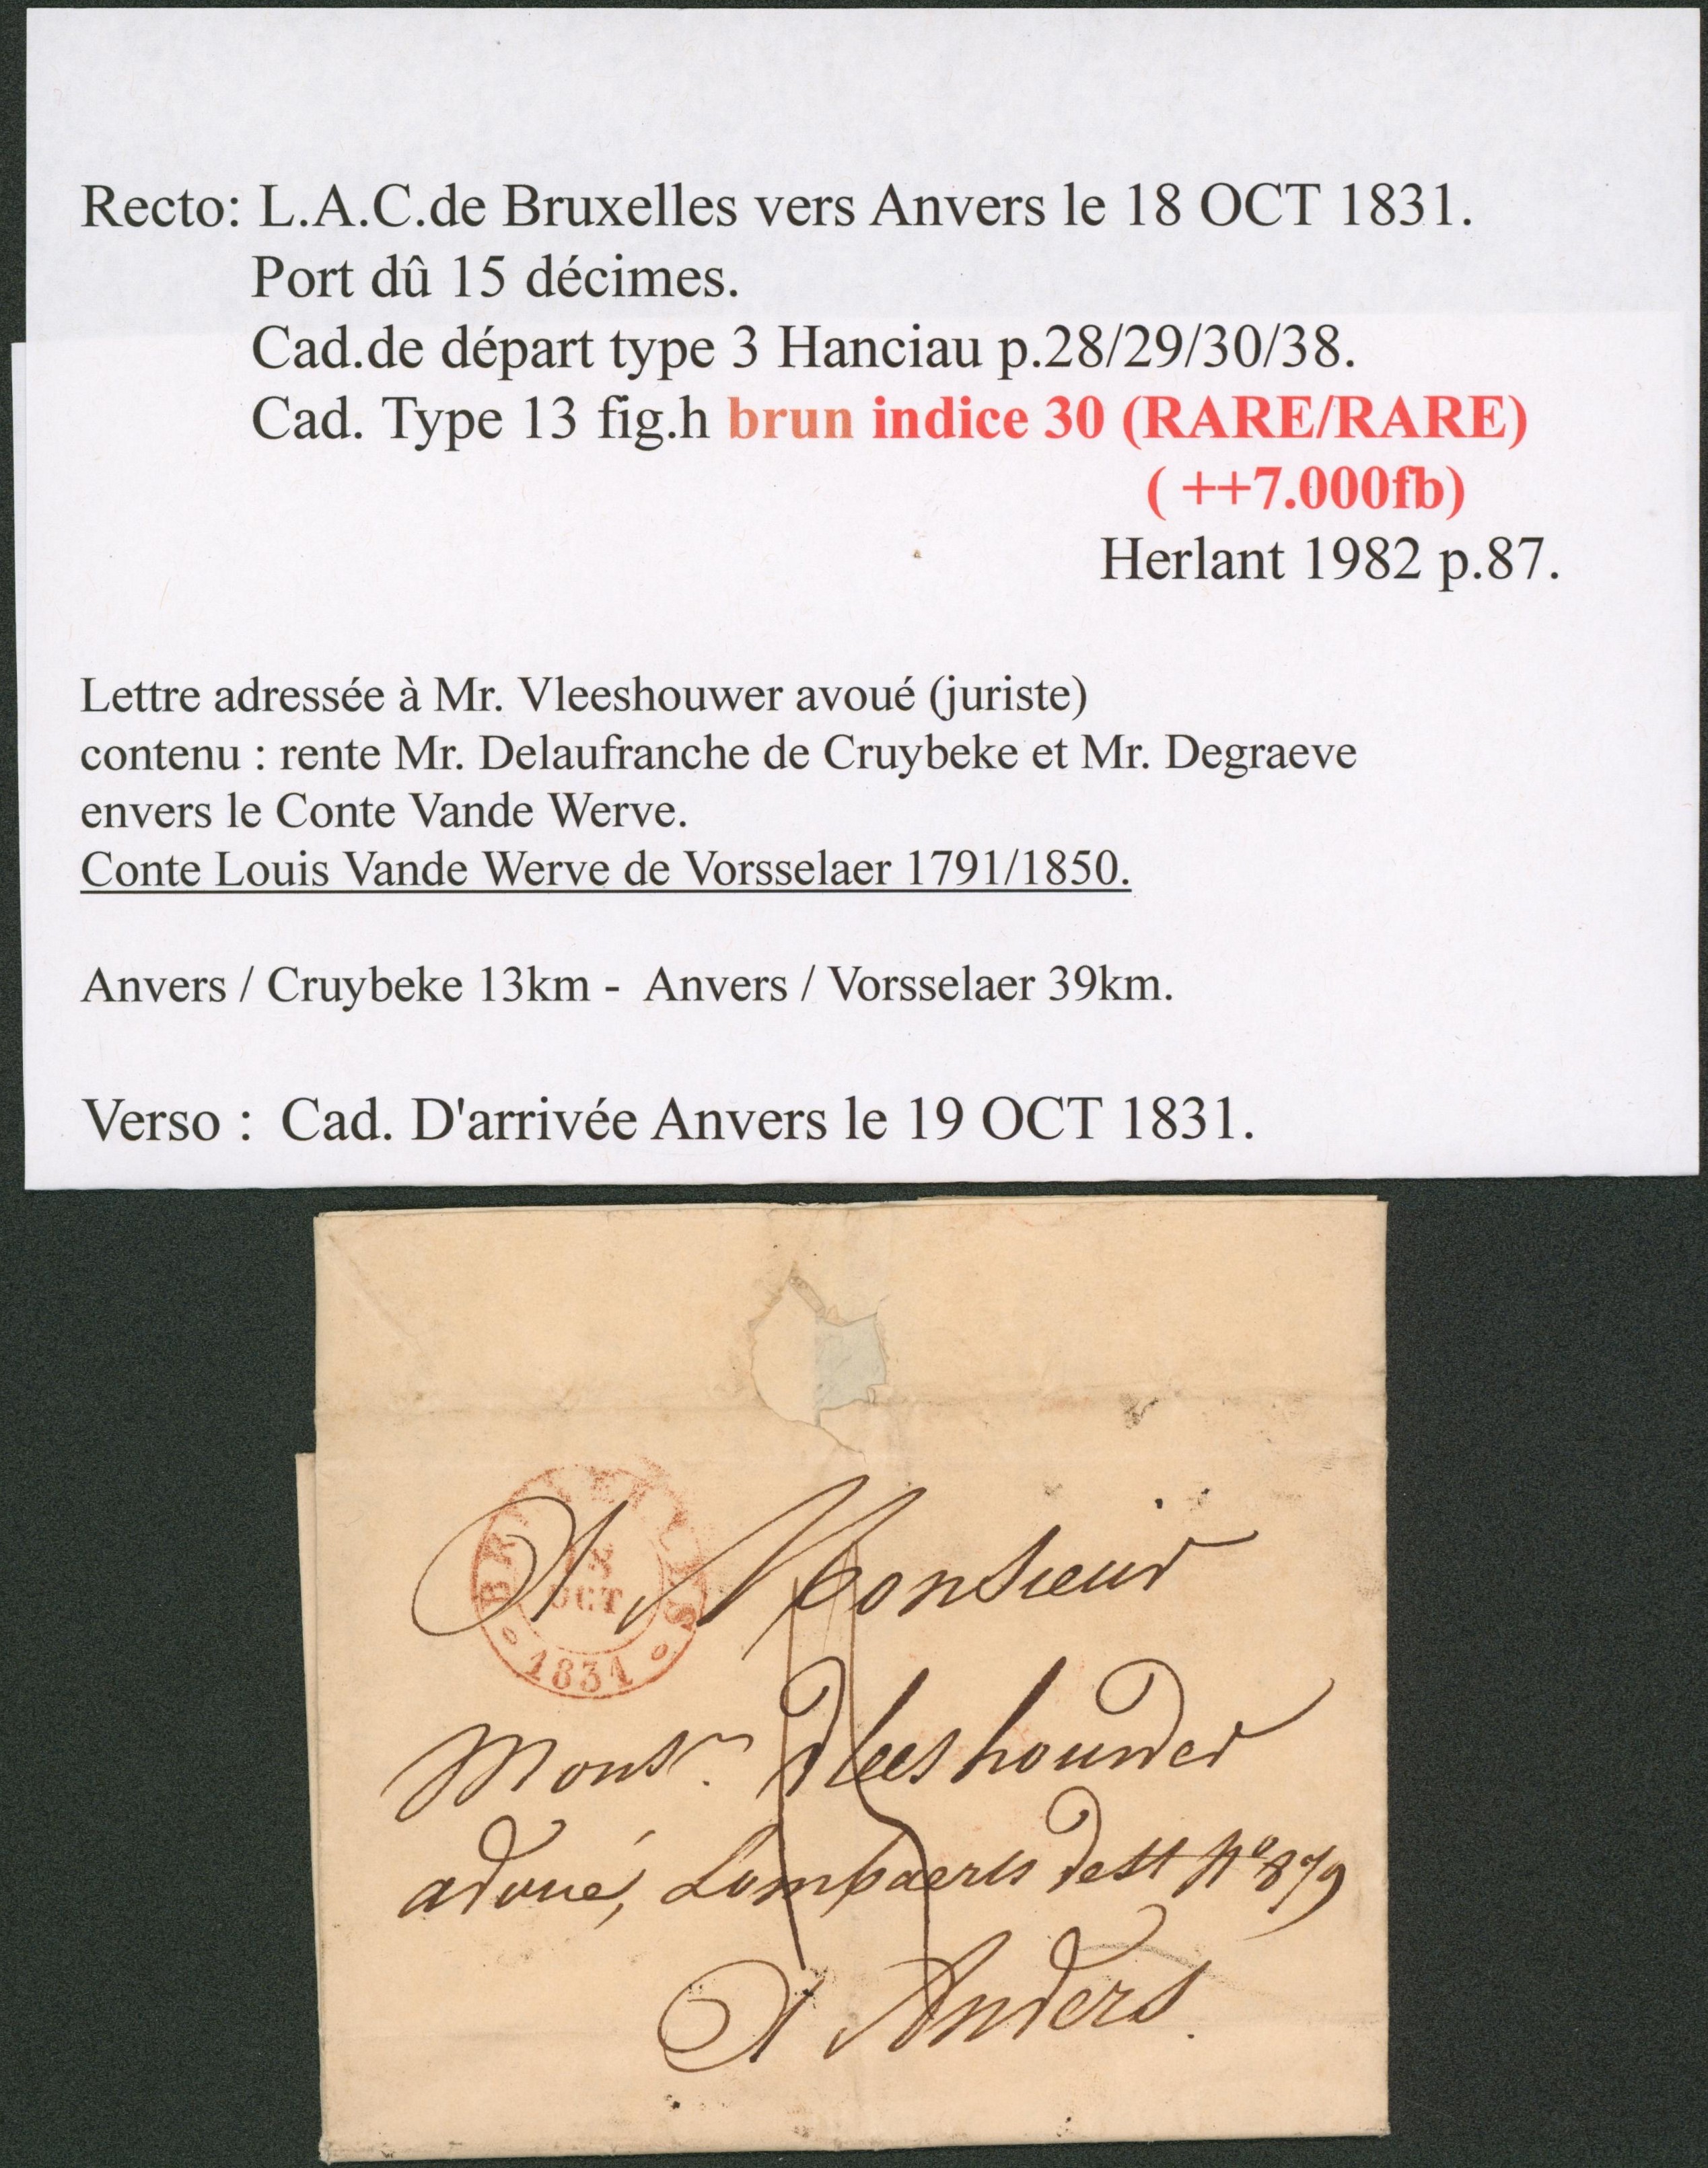 Recto: L.A.C.de Bruxelles vers Anvers le 18 OCT 1831.
Port dû 15 décimes.
Cad.de départ type 3 Hanciau p.28/29/30/38.
Cad. Type 13 fig.h brun indice 30 (RARE/RARE)
( ++7.000fb)
Herlant 1982 p.87.
Lettre adressée à Mr. Vleeshouwer avoué (juriste)
contenu : rente Mr. Delaufranche de Cruybeke et Mr. Degraeve
envers le Conte Vande Werve.
Conte Louis Vande Werve de Vorsselaer 1791/1850.
Anvers / Cruybeke 13km - Anvers / Vorsselaer 39km.
Verso : Cad. D'arrivée Anvers le 19 OCT 1831.
BRUXELLES
18
OCT
1831
15
A Monsieur
Monsr. Vleeshouwer
avoué, Lombaerts Vest No 879
A Anvers.